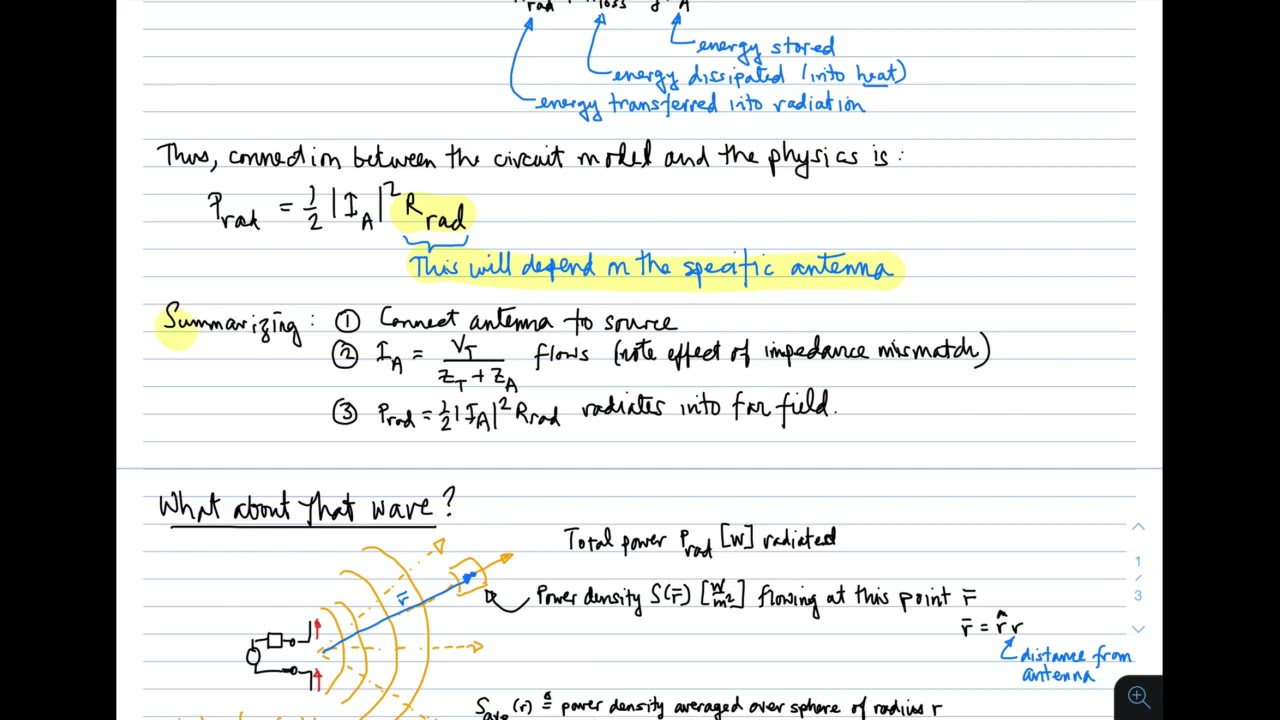 rad loss A
energy stored
energy dissipated (into heat)
energy transferred into radiation
Thus, connection between the circuit model and the physics is :
P_rad = 1/2 |I_A|^2 R_rad
This will depend on the specific antenna
Summarizing : ① Connect antenna to source
② I_A = V_T / (Z_T + Z_A) flows (note effect of impedance mismatch)
③ P_rad = 1/2 |I_A|^2 R_rad radiates into far field.
What about that wave?
Total power P_rad [W] radiated
Power density S(r̄) [W/m^2] flowing at this point r̄
r̄
r̄ = r̂ r
distance from
antenna
S_ave (r) ≜ power density averaged over sphere of radius r
1
/
3